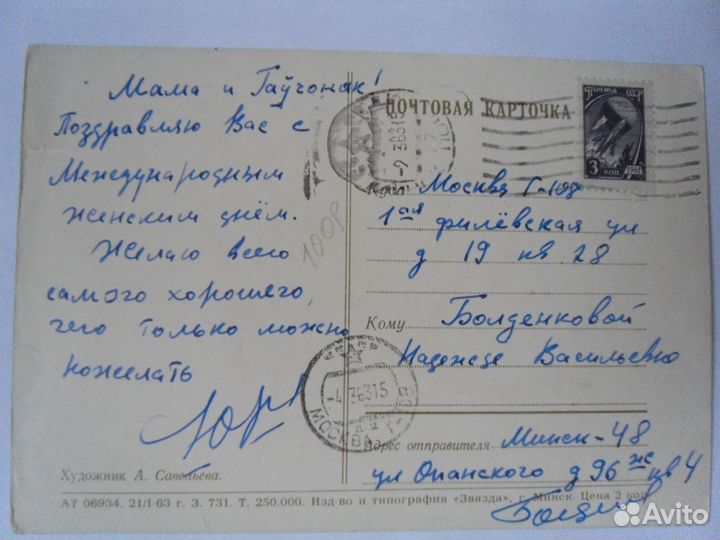 Мама и Гаўчонак!
Поздравляю Вас с
Международным
женским днём.
Желаю всего
самого хорошего,
чего только можно
пожелать
Юра
100р
Художник А. Савельева.
ПОЧТОВАЯ КАРТОЧКА
ПОЧТА СССР
3 КОП
1961
Куда Москва Г-108
1ая филёвская ул
д 19 кв. 28
Кому Болденковой
Надежде Васильевне
СССР
МОСКВА
Адрес отправителя Минск-48
ул Опанского д 96 ж кв 4
АТ 06934. 21/I-63 г. З. 731. Т. 250.000. Изд-во и типография «Звязда», г. Минск. Цена 2 коп.
Avito